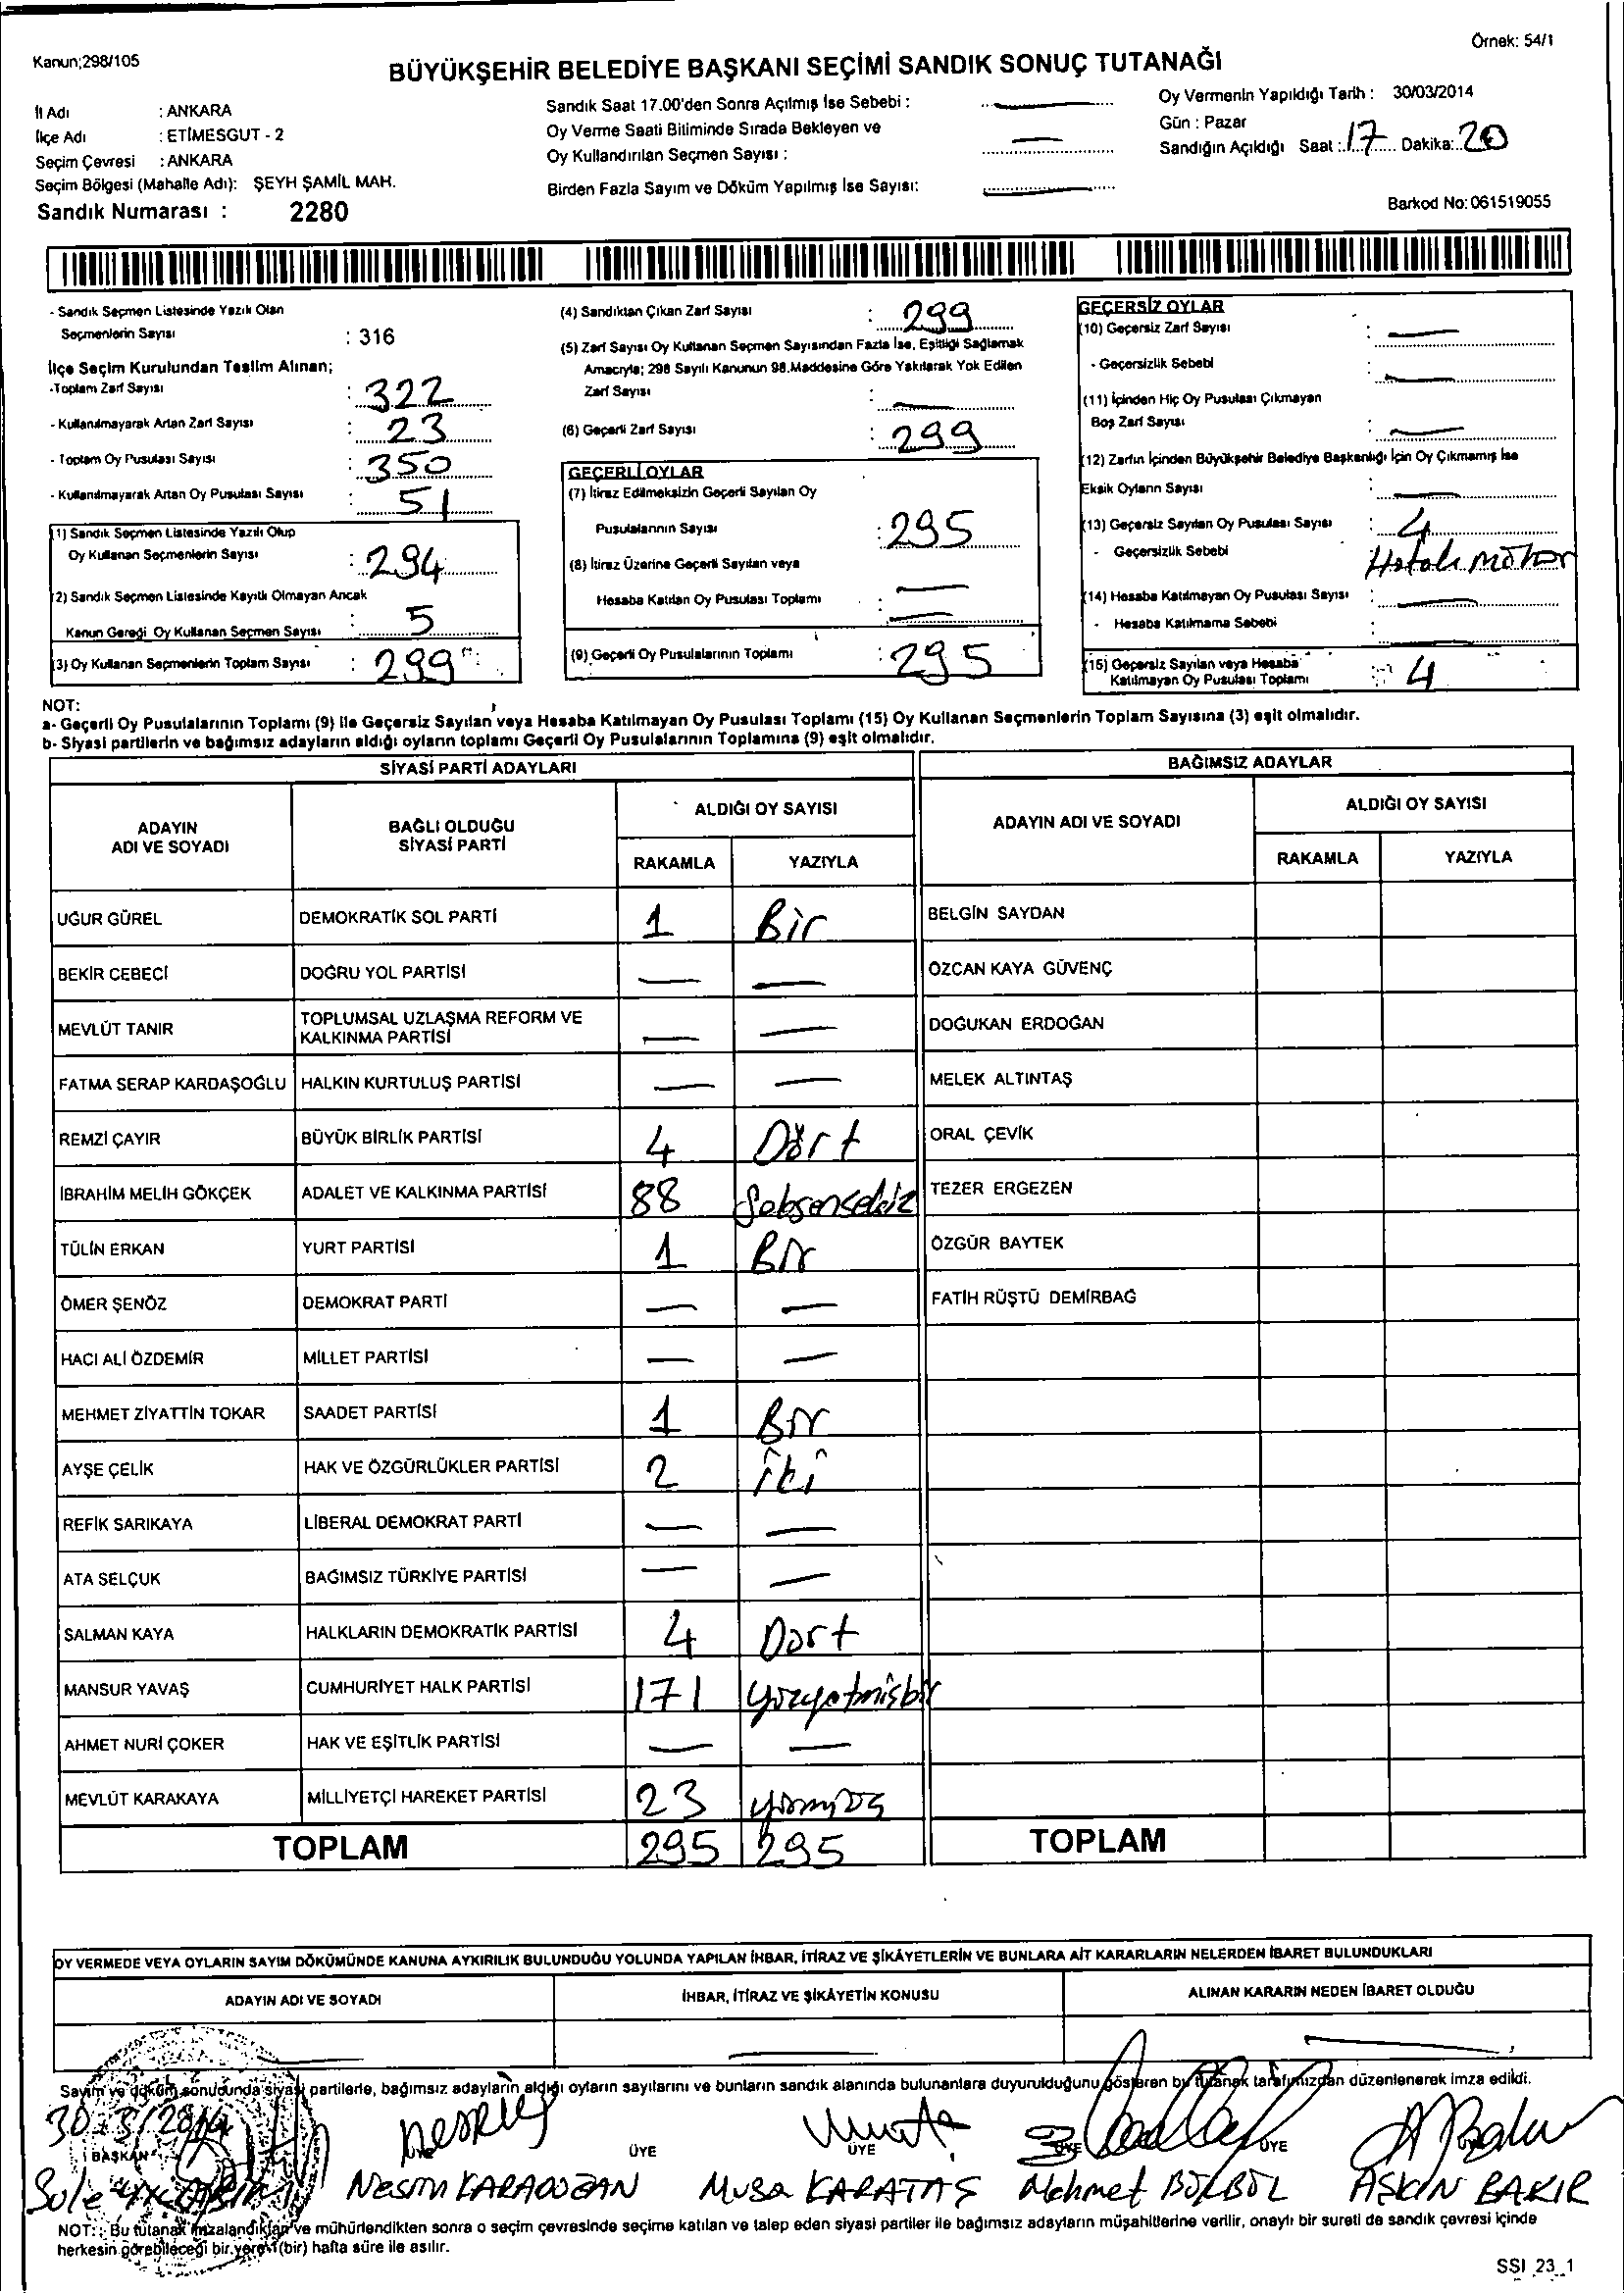 Kanun;298/105
Örnek: 54/1
BÜYÜKŞEHİR BELEDİYE BAŞKANI SEÇİMİ SANDIK SONUÇ TUTANAĞI
İl Adı : ANKARA
İlçe Adı : ETİMESGUT - 2
Seçim Çevresi : ANKARA
Seçim Bölgesi (Mahalle Adı): ŞEYH ŞAMİL MAH.
Sandık Numarası : 2280
Sandık Saat 17.00'den Sonra Açılmış İse Sebebi : —
Oy Verme Saati Bitiminde Sırada Bekleyen ve
Oy Kullandırılan Seçmen Sayısı : —
Birden Fazla Sayım ve Döküm Yapılmış İse Sayısı: —
Oy Vermenin Yapıldığı Tarih : 30/03/2014
Gün : Pazar
Sandığın Açıldığı Saat : 17 Dakika: 20
Barkod No: 061519055
- Sandık Seçmen Listesinde Yazılı Olan
Seçmenlerin Sayısı : 316
İlçe Seçim Kurulundan Teslim Alınan;
-Toplam Zarf Sayısı : 322
- Kullanılmayarak Artan Zarf Sayısı : 23
- Toplam Oy Pusulası Sayısı : 350
- Kullanılmayarak Artan Oy Pusulası Sayısı : 51
(1) Sandık Seçmen Listesinde Yazılı Olup
Oy Kullanan Seçmenlerin Sayısı : 294
(2) Sandık Seçmen Listesinde Kayıtlı Olmayan Ancak
Kanun Gereği Oy Kullanan Seçmen Sayısı : 5
(3) Oy Kullanan Seçmenlerin Toplam Sayısı : 299
(4) Sandıktan Çıkan Zarf Sayısı : 299
(5) Zarf Sayısı Oy Kullanan Seçmen Sayısından Fazla İse, Eşitliği Sağlamak
Amacıyla; 298 Sayılı Kanunun 98.Maddesine Göre Yakılarak Yok Edilen
Zarf Sayısı : —
(6) Geçerli Zarf Sayısı : 299
GEÇERLİ OYLAR
(7) İtiraz Edilmeksizin Geçerli Sayılan Oy
Pusulalarının Sayısı : 295
(8) İtiraz Üzerine Geçerli Sayılan veya
Hesaba Katılan Oy Pusulası Toplamı : —
(9) Geçerli Oy Pusulalarının Toplamı : 295
GEÇERSİZ OYLAR
(10) Geçersiz Zarf Sayısı : —
- Geçersizlik Sebebi : —
(11) İçinden Hiç Oy Pusulası Çıkmayan
Boş Zarf Sayısı : —
(12) Zarfın İçinden Büyükşehir Belediye Başkanlığı İçin Oy Çıkmamış İse
Eksik Oyların Sayısı : —
(13) Geçersiz Sayılan Oy Pusulası Sayısı : 4
- Geçersizlik Sebebi : Hatalı mühür
(14) Hesaba Katılmayan Oy Pusulası Sayısı : —
- Hesaba Katılmama Sebebi :
(15) Geçersiz Sayılan veya Hesaba
Katılmayan Oy Pusulası Toplamı : 4
NOT:
a- Geçerli Oy Pusulalarının Toplamı (9) ile Geçersiz Sayılan veya Hesaba Katılmayan Oy Pusulası Toplamı (15) Oy Kullanan Seçmenlerin Toplam Sayısına (3) eşit olmalıdır.
b- Siyasi partilerin ve bağımsız adayların aldığı oyların toplamı Geçerli Oy Pusulalarının Toplamına (9) eşit olmalıdır.
SİYASİ PARTİ ADAYLARI
ADAYIN ADI VE SOYADI
BAĞLI OLDUĞU SİYASİ PARTİ
ALDIĞI OY SAYISI
RAKAMLA YAZIYLA
BAĞIMSIZ ADAYLAR
ADAYIN ADI VE SOYADI
ALDIĞI OY SAYISI
RAKAMLA YAZIYLA
UĞUR GÜREL DEMOKRATİK SOL PARTİ 1 Bir BELGİN SAYDAN
BEKİR CEBECİ DOĞRU YOL PARTİSİ — — ÖZCAN KAYA GÜVENÇ
MEVLÜT TANIR TOPLUMSAL UZLAŞMA REFORM VE KALKINMA PARTİSİ — — DOĞUKAN ERDOĞAN
FATMA SERAP KARDAŞOĞLU HALKIN KURTULUŞ PARTİSİ — — MELEK ALTINTAŞ
REMZİ ÇAYIR BÜYÜK BİRLİK PARTİSİ 4 Dört ORAL ÇEVİK
İBRAHİM MELİH GÖKÇEK ADALET VE KALKINMA PARTİSİ 88 Seksensekiz TEZER ERGEZEN
TÜLİN ERKAN YURT PARTİSİ 1 Bir ÖZGÜR BAYTEK
ÖMER ŞENÖZ DEMOKRAT PARTİ — — FATİH RÜŞTÜ DEMİRBAĞ
HACI ALİ ÖZDEMİR MİLLET PARTİSİ — —
MEHMET ZİYATTİN TOKAR SAADET PARTİSİ 1 Bir
AYŞE ÇELİK HAK VE ÖZGÜRLÜKLER PARTİSİ 2 iki
REFİK SARIKAYA LİBERAL DEMOKRAT PARTİ — —
ATA SELÇUK BAĞIMSIZ TÜRKİYE PARTİSİ — —
SALMAN KAYA HALKLARIN DEMOKRATİK PARTİSİ 4 Dört
MANSUR YAVAŞ CUMHURİYET HALK PARTİSİ 171 yüzyetmişbir
AHMET NURİ ÇOKER HAK VE EŞİTLİK PARTİSİ — —
MEVLÜT KARAKAYA MİLLİYETÇİ HAREKET PARTİSİ 23 yirmiüç
TOPLAM 295 295 TOPLAM
OY VERMEDE VEYA OYLARIN SAYIM DÖKÜMÜNDE KANUNA AYKIRILIK BULUNDUĞU YOLUNDA YAPILAN İHBAR, İTİRAZ VE ŞİKÂYETLERİN VE BUNLARA AİT KARARLARIN NELERDEN İBARET BULUNDUKLARI
ADAYIN ADI VE SOYADI İHBAR, İTİRAZ VE ŞİKÂYETİN KONUSU ALINAN KARARIN NEDEN İBARET OLDUĞU
Sayım ve döküm sonucunda siyasi partilerle, bağımsız adayların aldığı oyların sayılarını ve bunların sandık alanında bulunanlara duyurulduğunu gösteren bu tutanak tarafımızdan düzenlenerek imza edildi.
30-3/2014
BAŞKAN ÜYE ÜYE ÜYE ÜYE
Musa KARATAŞ Mehmet BÜLBÜL AŞKIN BAKIR
NOT: Bu tutanak imzalandıktan ve mühürlendikten sonra o seçim çevresinde seçime katılan ve talep eden siyasi partiler ile bağımsız adayların müşahitlerine verilir, onaylı bir sureti de sandık çevresi içinde
herkesin görebileceği bir yere 1 (bir) hafta süre ile asılır.
SSI_23_1